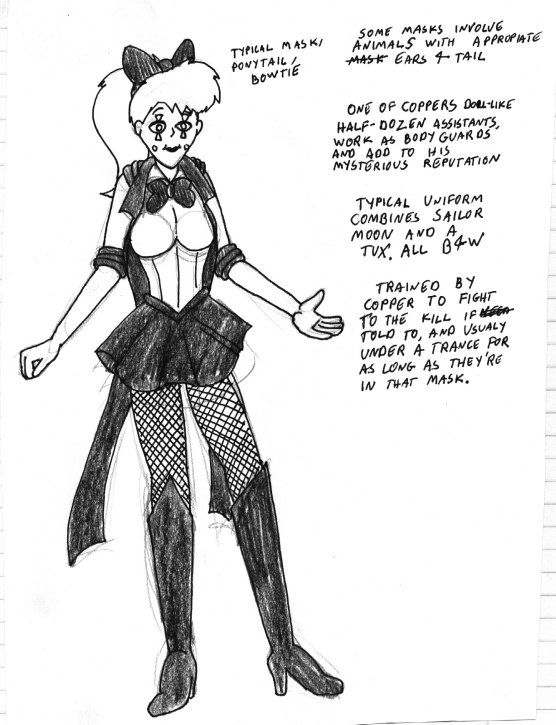 TYPICAL MASK/
PONYTAIL/
BOWTIE
SOME MASKS INVOLVE
ANIMALS WITH APPROPIATE
MASK EARS & TAIL
ONE OF COPPERS DOLL-LIKE
HALF-DOZEN ASSISTANTS,
WORK AS BODY GUARDS
AND ADD TO HIS
MYSTERIOUS REPUTATION
TYPICAL UNIFORM
COMBINES SAILOR
MOON AND A
TUX. ALL B&W
TRAINED BY
COPPER TO FIGHT
TO THE KILL IF
TOLD TO, AND USUALY
UNDER A TRANCE FOR
AS LONG AS THEY'RE
IN THAT MASK.